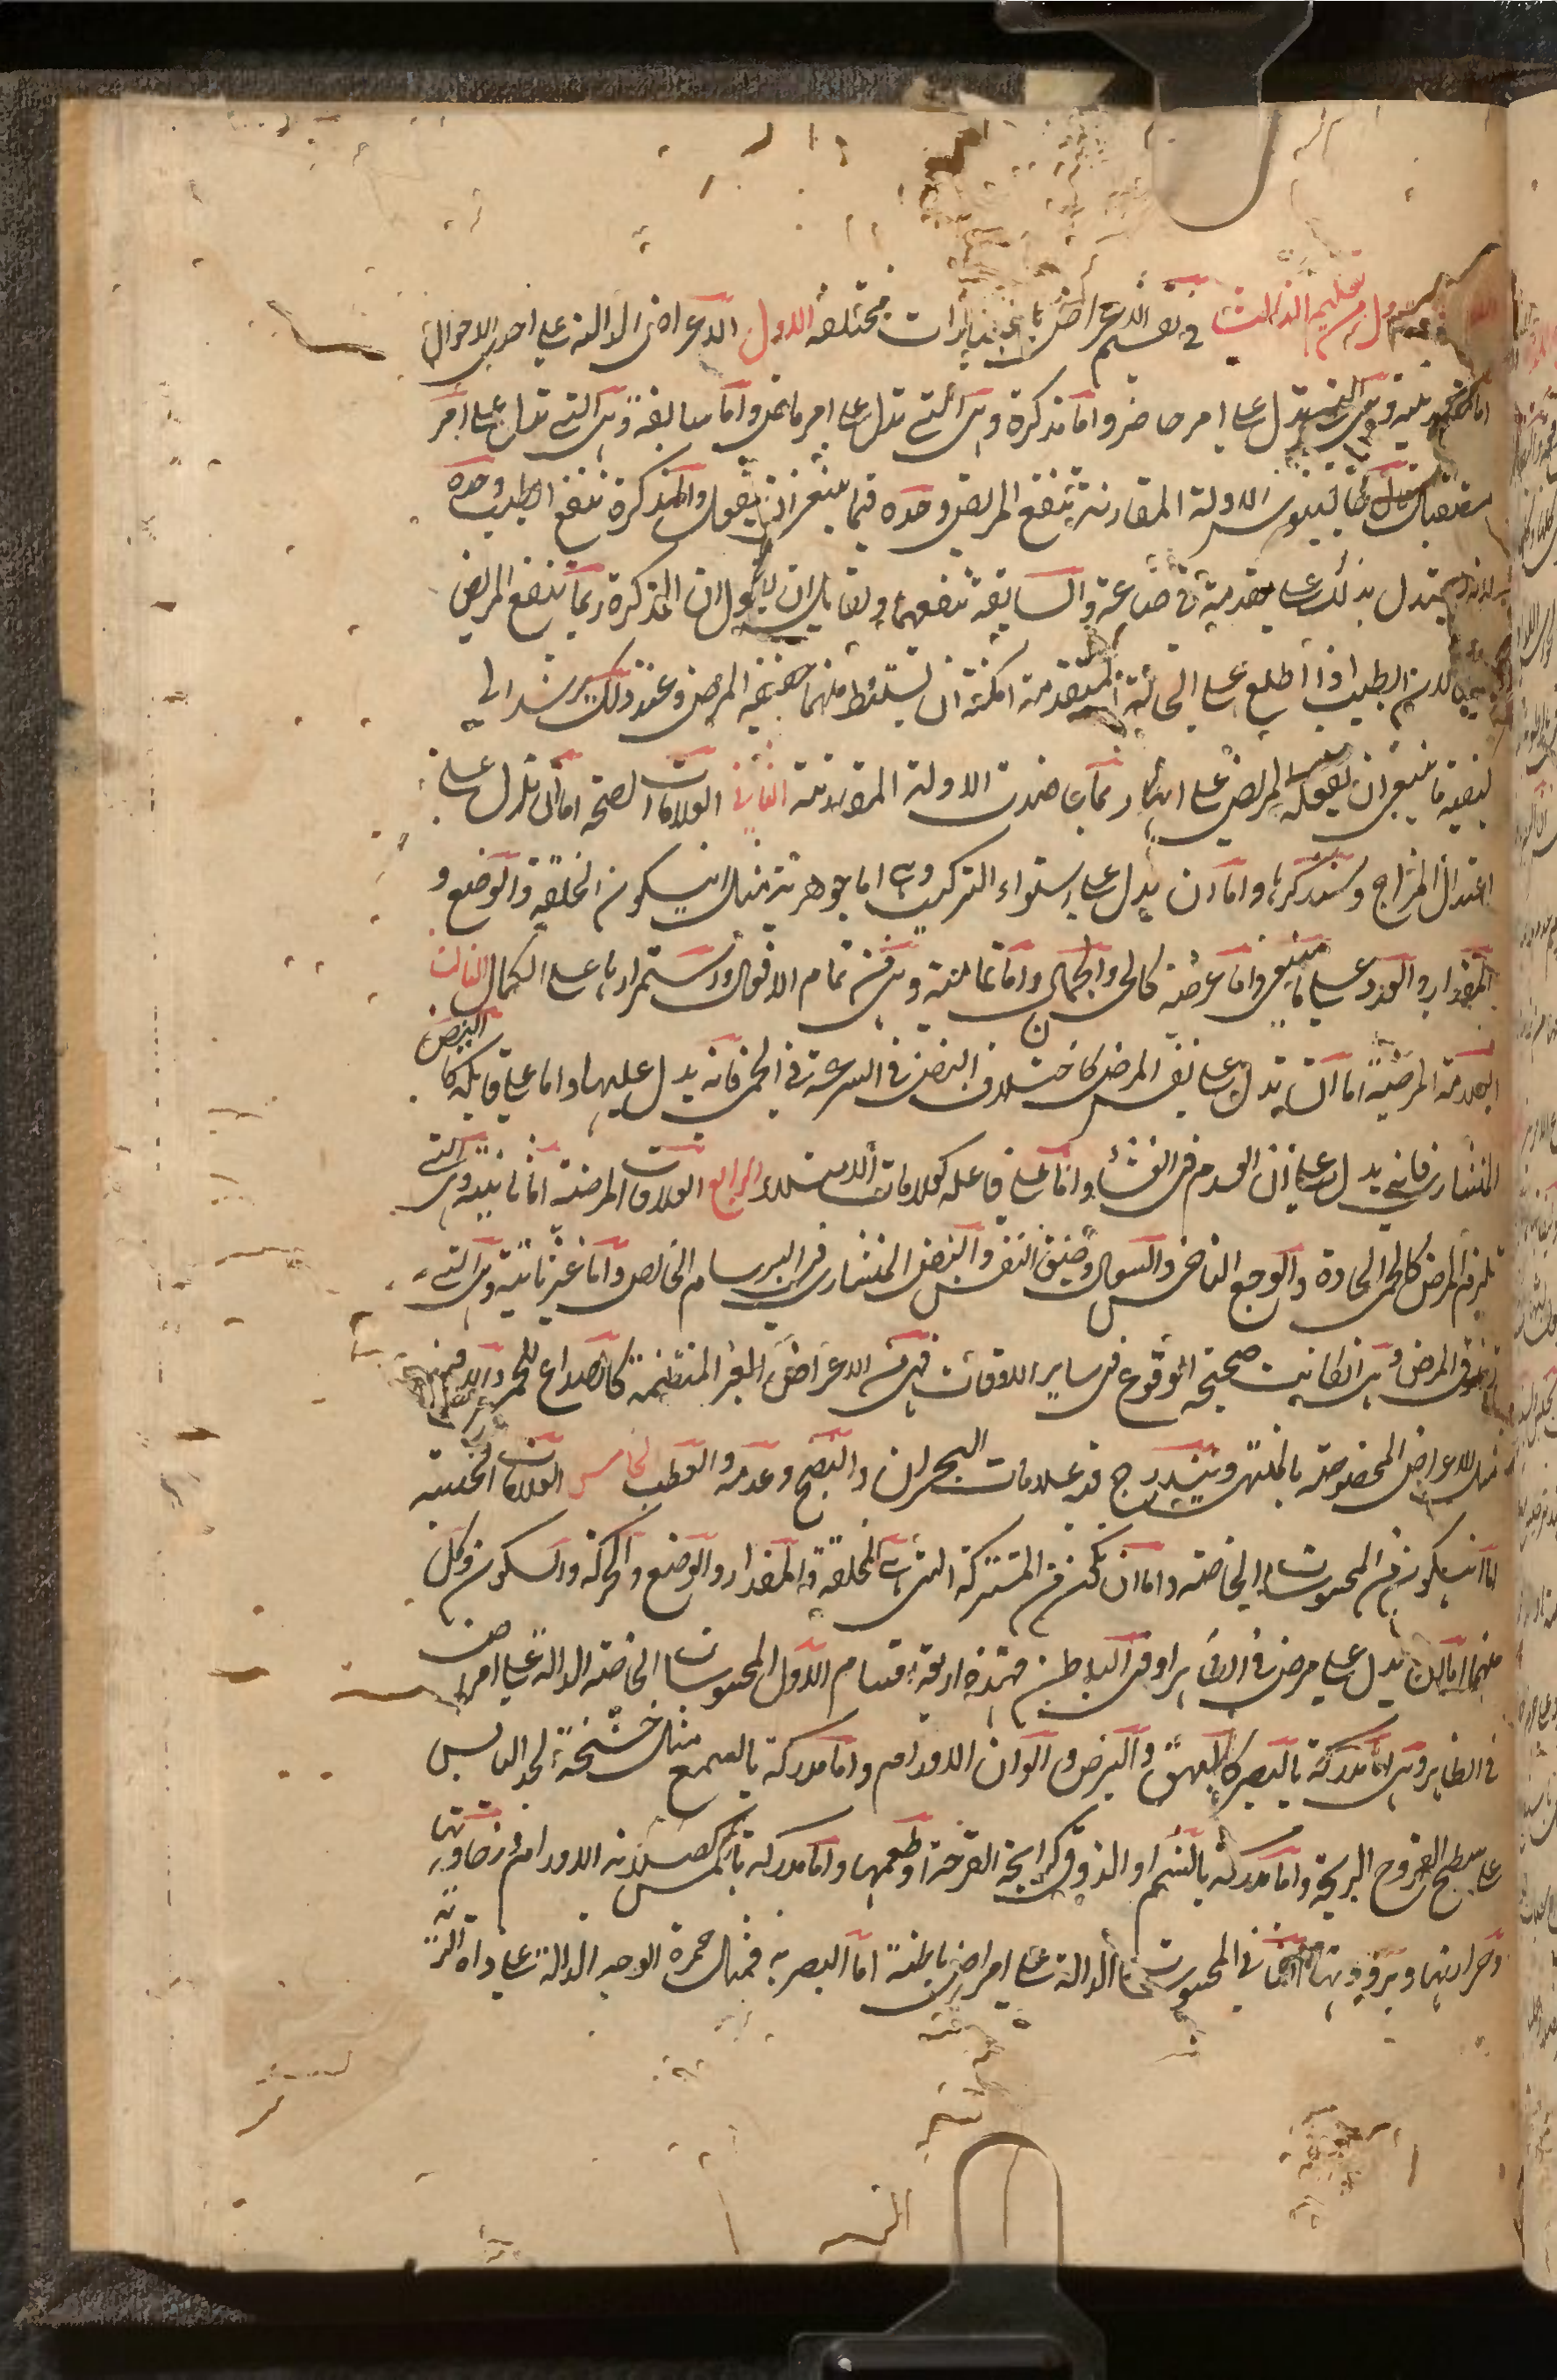 التعليم الثالث في تقسيم الاعراض باعتبارات مختلفة الاول الاعراض الدالة على احدى الاحوال
وهي التي تدل على امر حاضر واما مذكرة وهي التي تدل على امر ماض واما سابقة وهي التي تدل على امر
مستقبل قال جالينوس الادلة المقارنة ينتفع المريض وحده فيما ينبغي ان يفعل والمذكرة ينتفع الطبيب وحده
لانه يستدل بذلك على تقدمه في صناعته والسابقة تنفعهما ولقائل ان يقول ان المذكرة ربما ينتفع المريض
لان الطبيب اذا اطلع على الحالة المتقدمة امكنه ان يستنبط منها حقيقة المرض وعند ذلك يرشد الى
كيفية ما ينبغي ان يفعله المريض على انها ربما عاضدت الادلة المقارنة الثاني العلامات الصحة اما ان تدل على
اعتدال المزاج وسنذكرها واما ان يدل على استواء التركيب وهي اما جوهرية مثل ان يكون الخلقة والوضع و
المقدار والعدد على ما ينبغي واما عرضية كالحسن والجمال واما تمامية وهي من تمام الافعال واستمرارها على الكمال الثالث
العلامة المرضية اما ان تدل على نفس المرض كاختلاف النبض في السرعة في الحمى فانه يدل عليها واما على قابله كالنبض
المنشاري فانه يدل على ان الورم في الغشاء واما على فاعله كعلامات الامتلاء الرابع العلامات المرضية اما ثابتة وهي التي
تلزم المرض كالحمى الحادة والوجع الناخس والسعال وضيق النفس والنبض المنشاري في البرسام الخالص واما غير ثابتة وهي التي
المرض وهي ان كانت صحيحة الوقوع في ساير الاوقات فهي من الاعراض الغير المنتظمة كالصداع للحمى
الاعراض المخصوصة بالمنتهى ويندرج فيه علامات البحران والنضج وعدمه والعطب الخامس العلامات الحسية
اما ان يكون من المحسوسات الخاصة واما ان تكن من المشتركة التي هي الخلقة والمقدار والوضع والحركة والسكون وكل
منهما اما ان يدل على مرض في الظاهر او في الباطن فهذه اربعة اقسام الاول المحسوسات الخاصة الدالة على امراض
في الظاهر وهي اما مدركة بالبصر كالبهق والبرص والوان الاورام واما مدركة بالسمع مثل خشخشة الجلد اليابس
على سطح القروح البرية واما مدركة بالشم او الذوق كرايحة القرحة او طعمها واما مدركة باللمس كصلابة الاورام ورخاوتها
وحرارتها وبرودتها الثاني في المحسوسات الدالة على امراض باطنة اما البصرية فمثل حمرة الوجه الدالة على ذات الرية